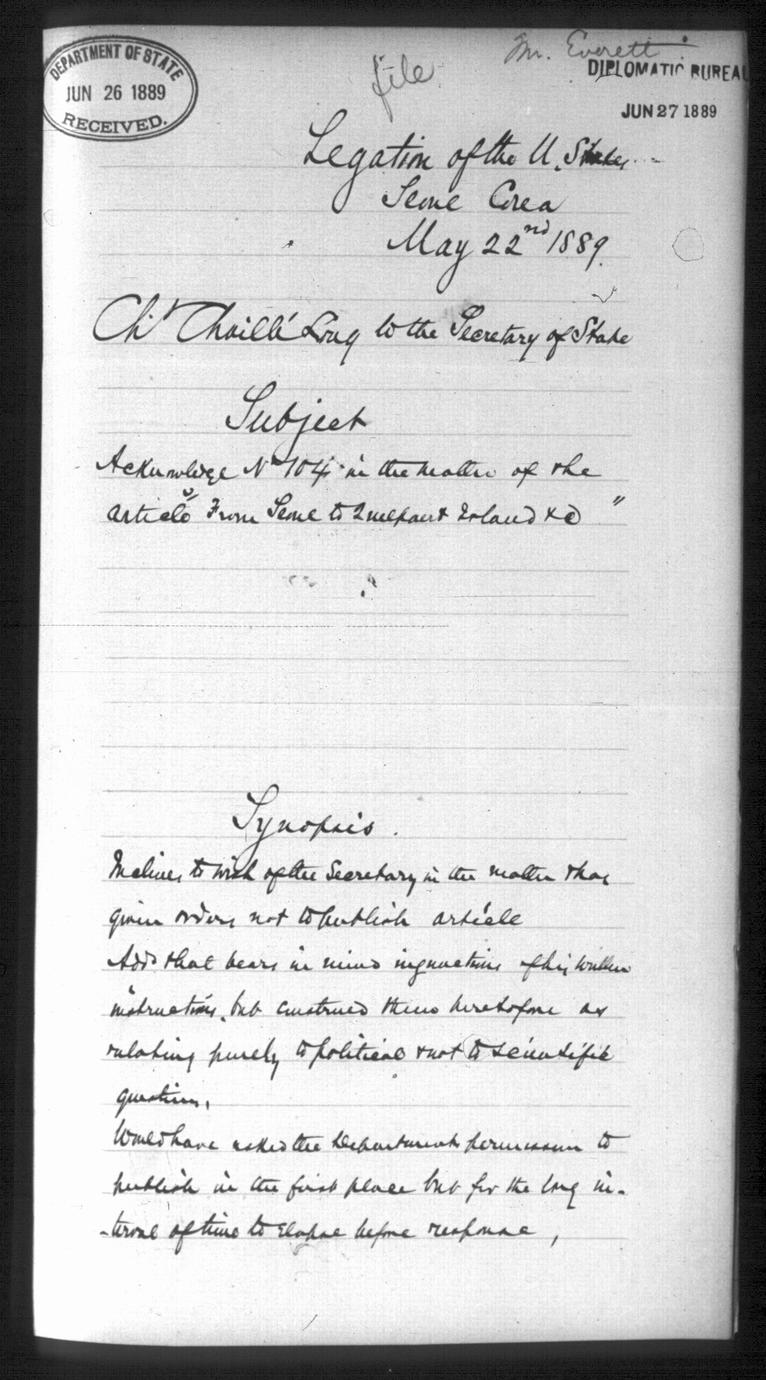 DEPARTMENT OF STATE
JUN 26 1889
RECEIVED.
file
Mr. Everett
DIPLOMATIC BUREAU
JUN 27 1889
Legation of the U. States
Seoul Corea
May 22nd 1889.
Ch. Chaillé Long to the Secretary of State
Subject
Acknowledge No 104 in the matter of the
article "From Seoul to Quelpaert Island &c"
Synopsis.
to wish of the Secretary in the matter & has
given orders not to publish article
Adds that bears in mind of his written
instructions, but construed them heretofore as
relating purely to political & not to scientific
questions,
Would have asked the Departments permission to
publish in the first place but for the long in-
-terval of time to elapse before response,